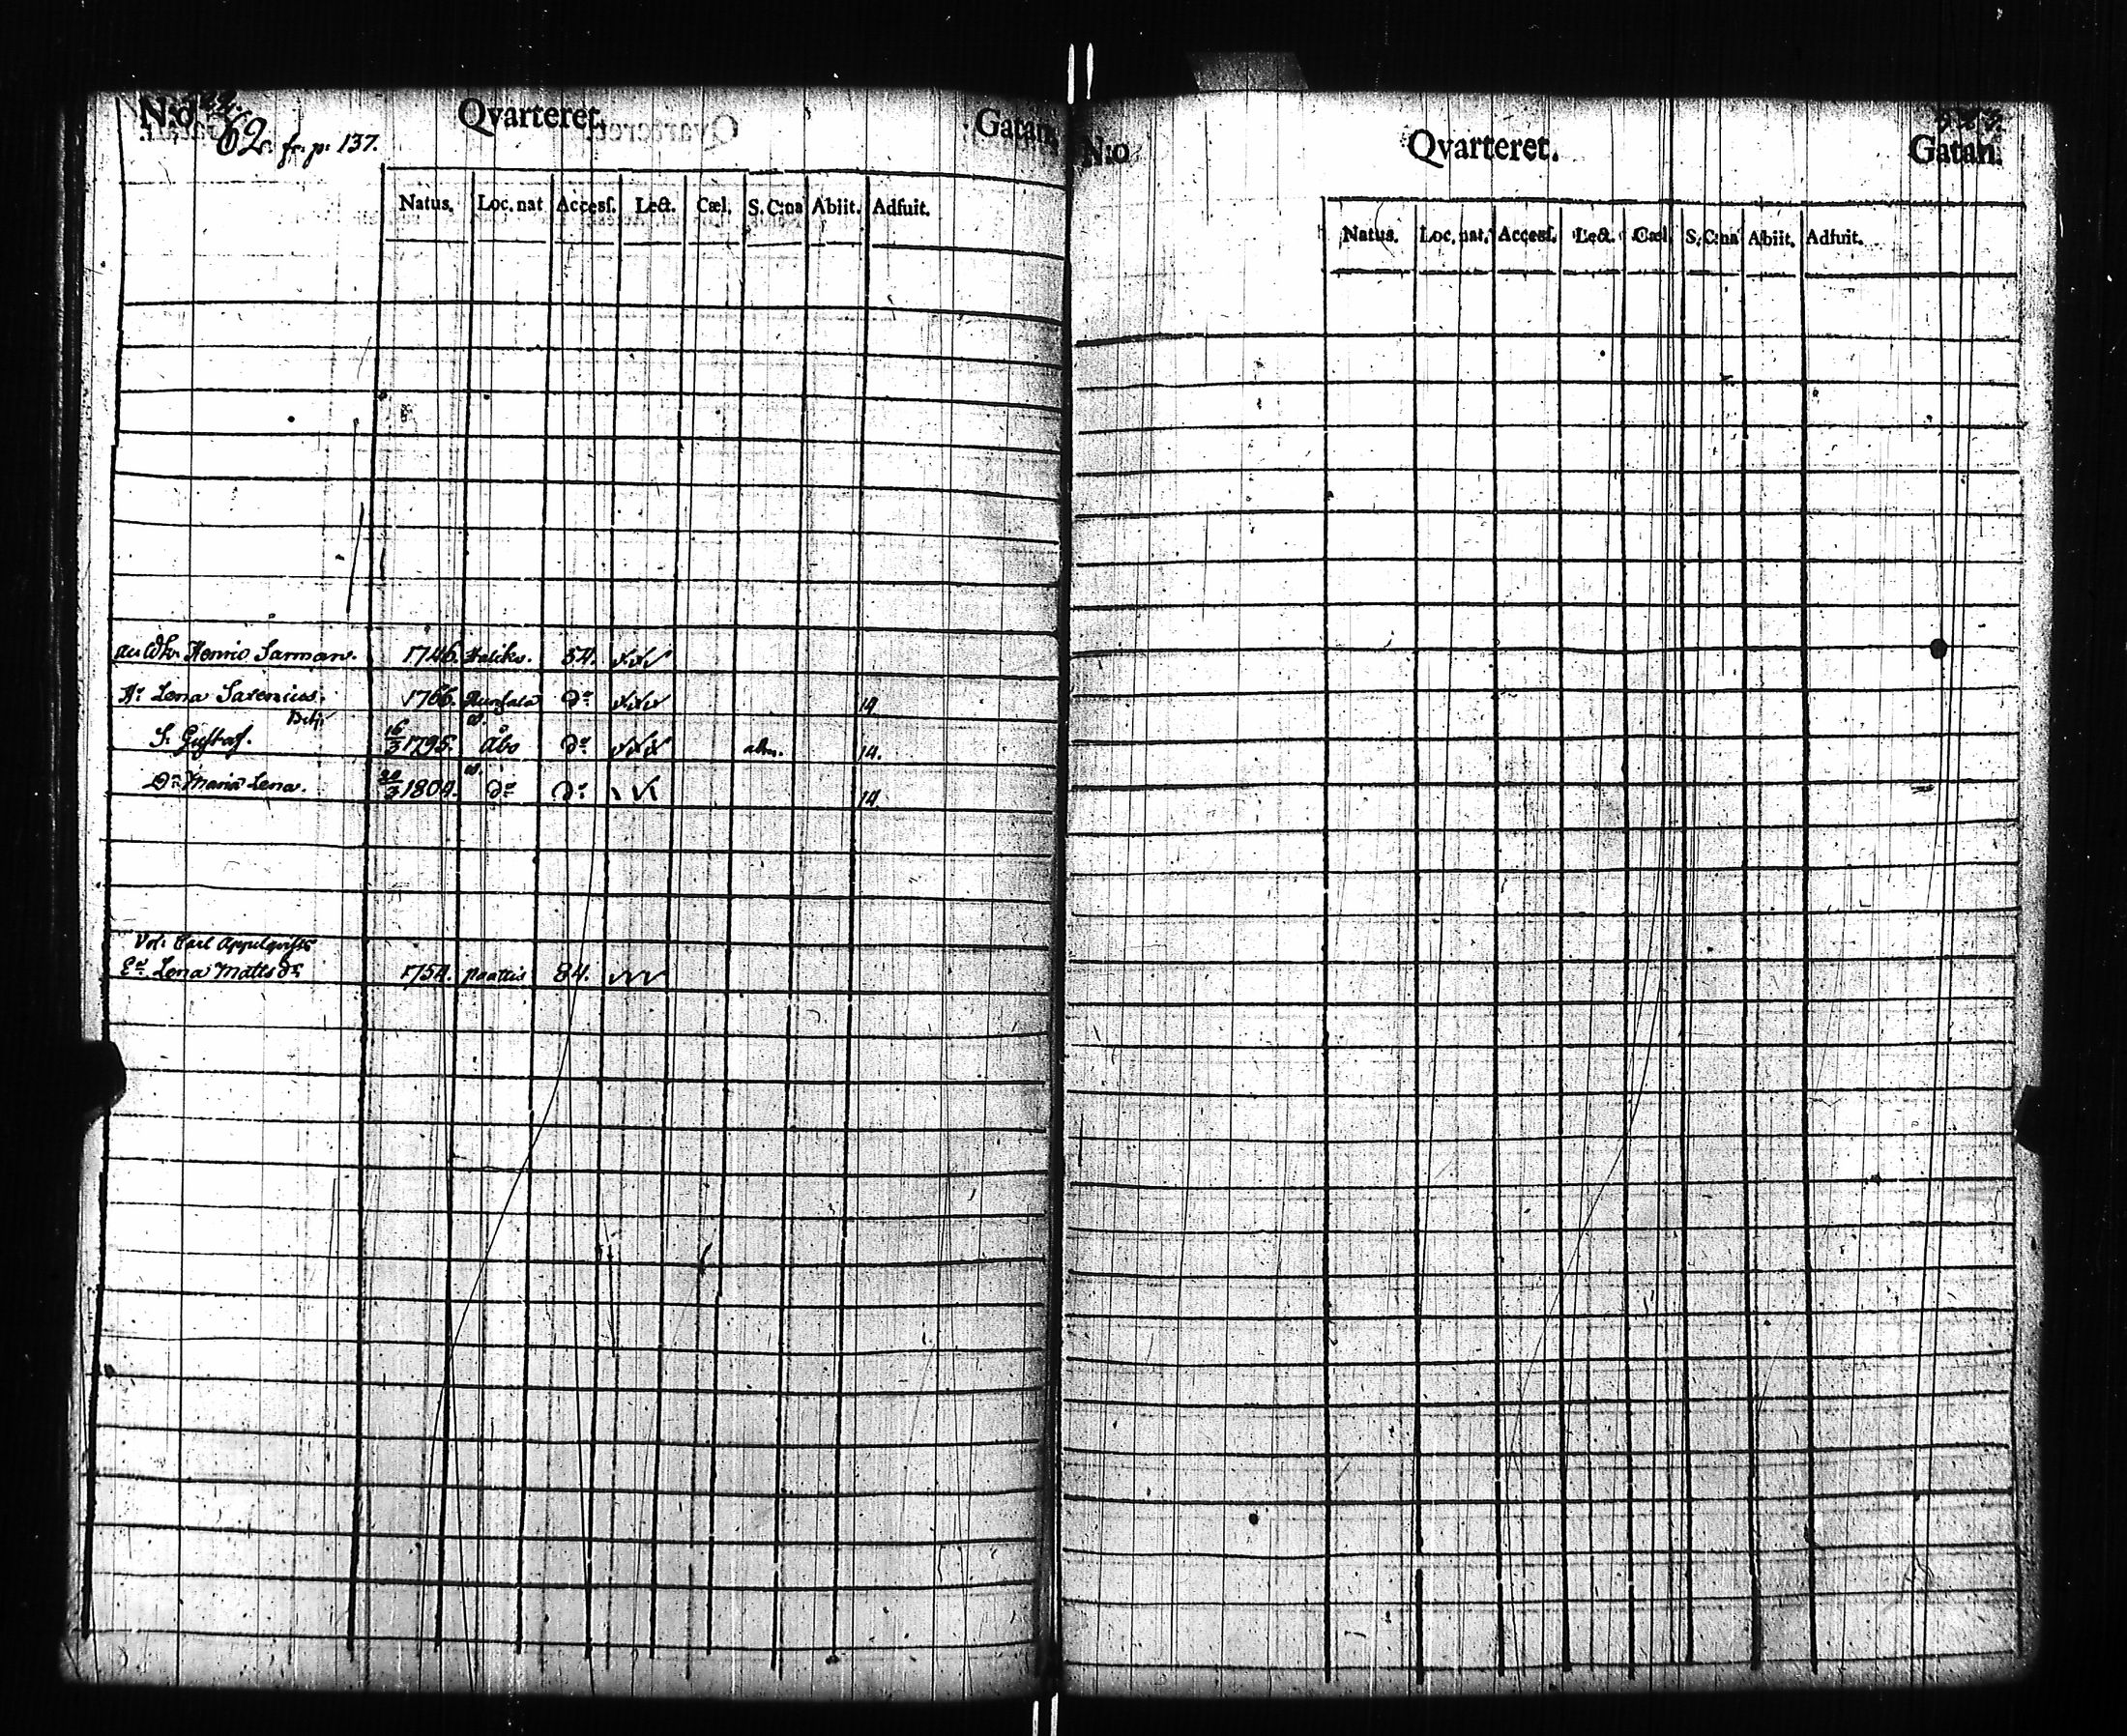 N:o 62. fr. p: 137. Qvarteret. Gatan.
Natus. Loc. nat Accesſ. Lect. Cæl. S. C:na Abiit. Adfuit.
Henric Sarman. 1746. Haliko. 54.
Hu Lena Saxenius. 1766. Rungala do 14
S. Gustaf. 16/3 1795. Åbo do adm. 14.
Dr Maria Lena. 20/3 1804. do do 14
Vol: Carl Appelqvists
Ea Lena Matts dr 1754. paattis 84.
N:o Qvarteret. Gatan.
Natus. Loc. nat. Accesſ. Lect. Cæl. S. C:na Abiit. Adfuit.